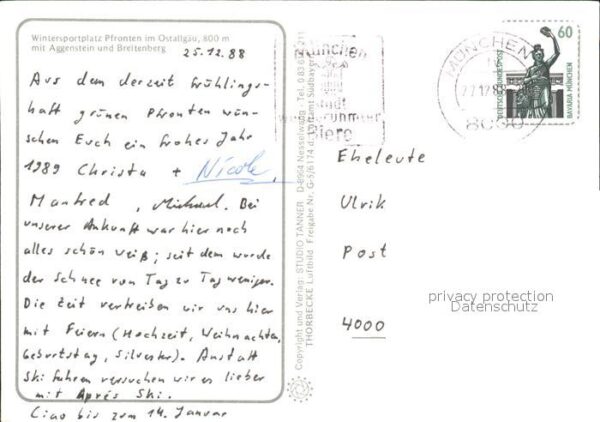 Wintersportplatz Pfronten im Ostallgäu, 800 m
mit Aggenstein und Breitenberg
25.12.88
Aus dem derzeit frühlings-
haft grünen Pfronten wün-
schen Euch ein frohes Jahr
1989 Christa + Nicole,
Manfred, Michael. Bei
unserer Ankunft war hier noch
alles schön weiß; seit dem wurde
der Schnee von Tag zu Tag weniger.
Die Zeit vertreiben wir uns hier
mit Feiern (Hochzeit, Weihnachten,
Geburtstag, Silvester). Anstatt
Ski fahren versuchen wir es lieber
mit Après Ski.
Ciao bis zum 14. Januar
Copyright und Verlag: STUDIO TANNER D-8964 Nesselwang
THORBECKE Luftbild
München
Stadt
weltberühmter
Biere
MÜNCHEN
8000
60
DEUTSCHE BUNDESPOST
BAVARIA MÜNCHEN
Eheleute
Ulrik
Post
4000
privacy protection
Datenschutz